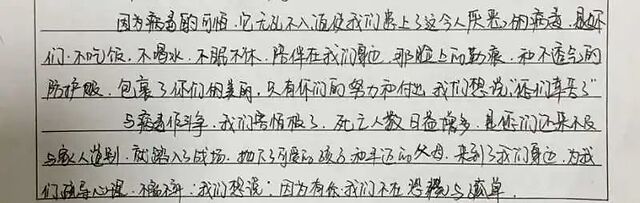 因为病毒的可怕，它无孔不入迫使我们患上了这令人厌恶的病毒，是你
们，不吃饭、不喝水、不眠不休，陪伴在我们身边，那脸上的勒痕，和不透气的
防护服，包裹了你们的美丽，只有你们的努力和付出，我们想说“你们辛苦了”
与病毒作斗争，我们害怕极了，死亡人数日益增多，是你们还来不及
与家人道别，就踏入了战场，抛下了可爱的孩子和年迈的父母，来到了我们身边，为我
们疏导心理，不眠不休，我们想说：因为有你，我们不在恐慌与孤单。